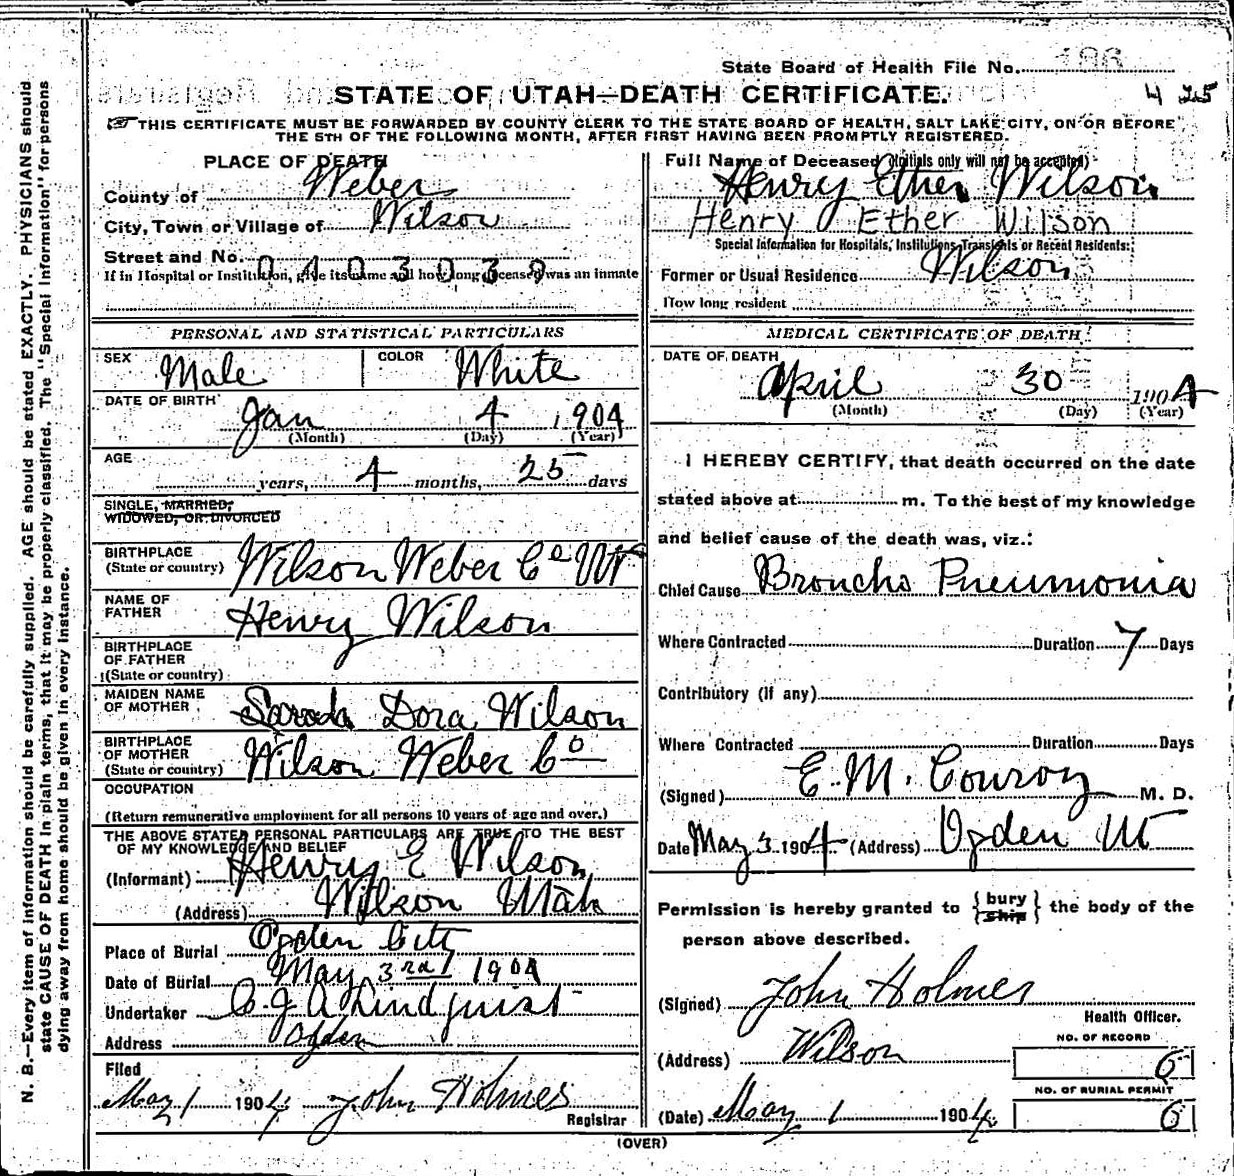 State Board of Health File No. 186
STATE OF UTAH—DEATH CERTIFICATE.
4 25
THIS CERTIFICATE MUST BE FORWARDED BY COUNTY CLERK TO THE STATE BOARD OF HEALTH, SALT LAKE CITY, ON OR BEFORE
THE 5TH OF THE FOLLOWING MONTH, AFTER FIRST HAVING BEEN PROMPTLY REGISTERED.
PLACE OF DEATH
County of Weber
City, Town or Village of Wilson
Street and No.
0403038
If in Hospital or Institution, give its name and how long deceased was an inmate
Full Name of Deceased (Initials only will not be accepted)
Henry Ether Wilson
Henry Ether Wilson
Special Information for Hospitals, Institutions, Transients or Recent Residents:
Former or Usual Residence Wilson
How long resident
PERSONAL AND STATISTICAL PARTICULARS
SEX Male COLOR White
DATE OF BIRTH
Jan 4 1904
(Month) (Day) (Year)
AGE
years, 4 months, 25 days
SINGLE, MARRIED,
WIDOWED, OR DIVORCED
BIRTHPLACE
(State or country) Wilson Weber Co Ut
NAME OF
FATHER Henry Wilson
BIRTHPLACE
OF FATHER
(State or country)
MAIDEN NAME
OF MOTHER Dora Wilson
BIRTHPLACE
OF MOTHER
(State or country) Wilson Weber Co
OCCUPATION
(Return remunerative employment for all persons 10 years of age and over.)
THE ABOVE STATED PERSONAL PARTICULARS ARE TRUE TO THE BEST
OF MY KNOWLEDGE AND BELIEF
(Informant) Henry E Wilson
(Address) Wilson Utah
Place of Burial Ogden City
Date of Burial May 3rd 1904
Undertaker C. J. A. Lindquist
Address Ogden
Filed
May 1 1904 John Holmes
Registrar
MEDICAL CERTIFICATE OF DEATH
DATE OF DEATH
April 30 1904
(Month) (Day) (Year)
I HEREBY CERTIFY, that death occurred on the date
stated above at m. To the best of my knowledge
and belief cause of the death was, viz.:
Chief Cause Broncho Pneumonia
Where Contracted Duration 7 Days
Contributory (if any)
Where Contracted Duration Days
(Signed) E. M. Conroy M. D.
Date May 3 1904 (Address) Ogden Ut
Permission is hereby granted to {bury ship} the body of the
person above described.
(Signed) John Holmes
Health Officer.
(Address) Wilson
NO. OF RECORD
6
NO. OF BURIAL PERMIT
6
(Date) May 1 1904
(OVER)
N. B.—Every item of information should be carefully supplied. AGE should be stated EXACTLY. PHYSICIANS should
state CAUSE OF DEATH in plain terms, that it may be properly classified. The "Special Information" for persons
dying away from home should be given in every instance.